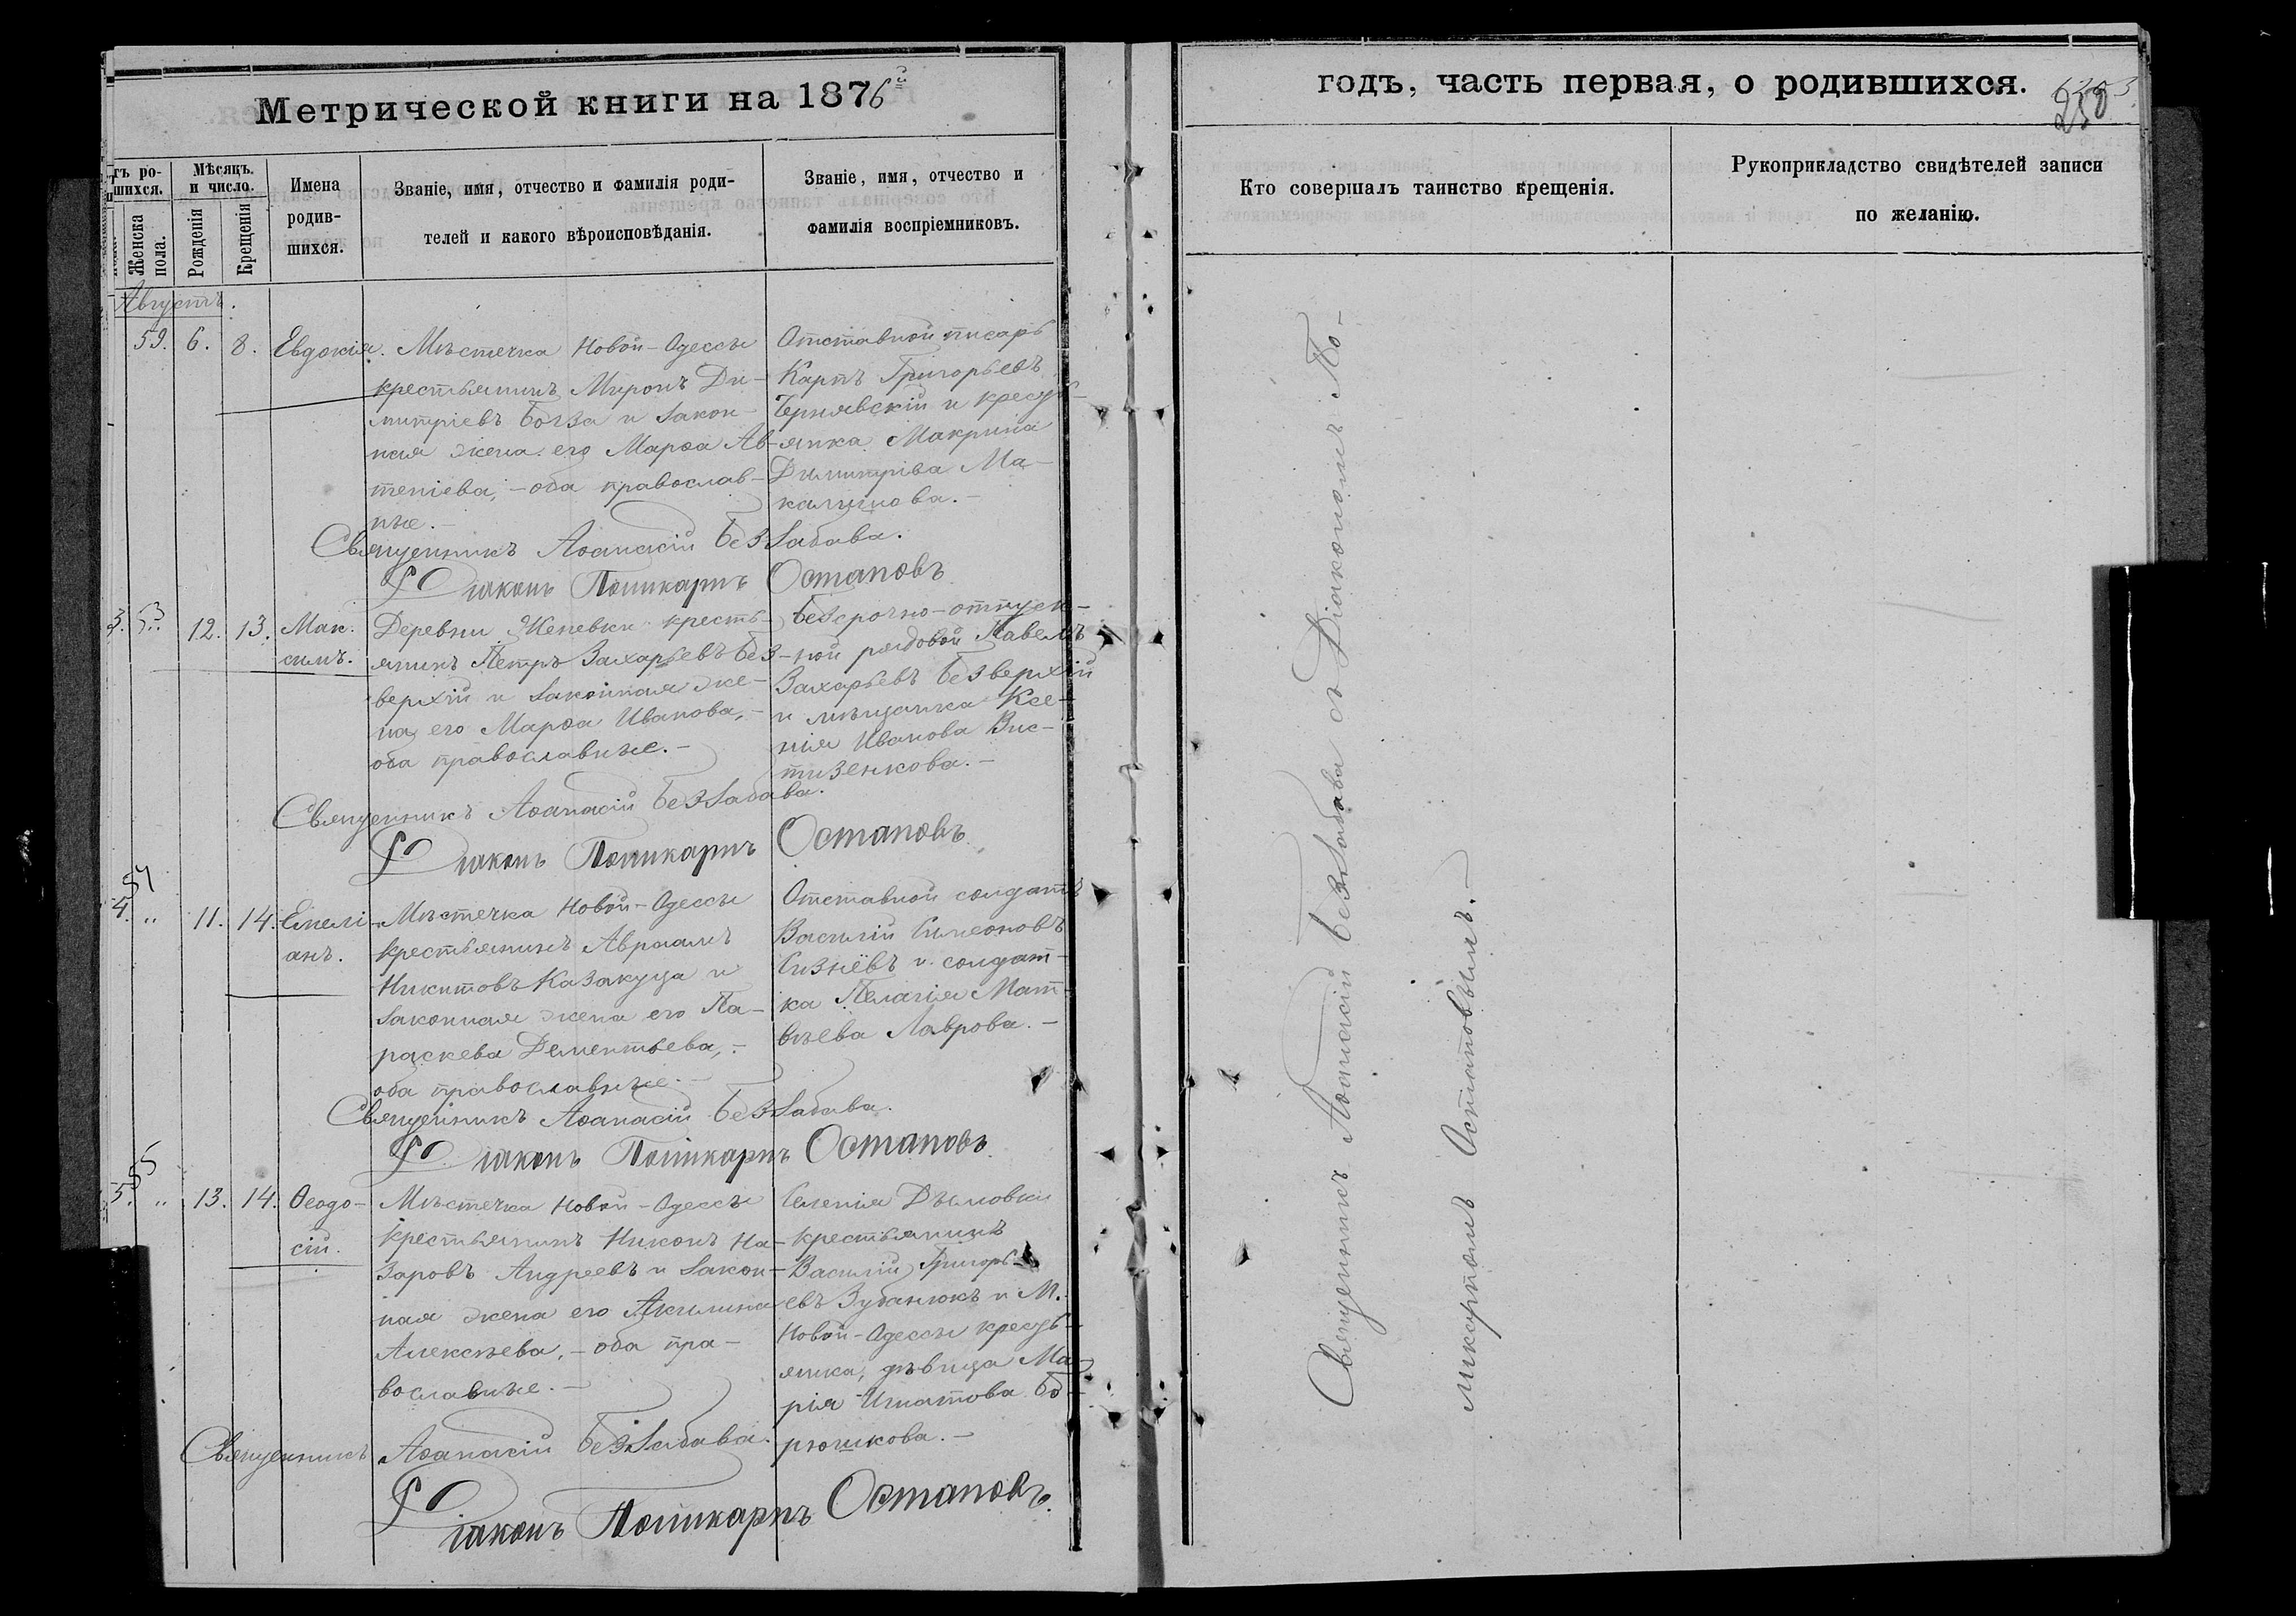 Метрической книги на 1876й
годъ, часть первая, о родившихся.
250
тъ ро-
шихся.
Женска
пола.
Мѣсяцъ.
и число.
Рожденія
Крещенія
Имена
родив-
шихся.
Званіе, имя, отчество и фамилія роди-
телей и какого вѣроисповѣданія.
Званіе, имя, отчество и
фамилія воспріемниковъ.
Кто совершалъ таинство крещенія.
Рукоприкладство свидѣтелей записи
по желанію.
Августъ.
59. 6. 8. Евдокія.
Мѣстечка Новой-Одессы
крестьянинъ Миронъ Ди-
митріевъ Богза и закон-
ная жена его Марѳа Ав-
теніева, - оба православ-
ные. -
Отставной писарь
Карпъ Григорьевъ
Чернявскій и кресть-
янка Макрина
Димитріва Ма-
калицова. -
Священникъ Аѳанасій Беззабава.
Діаконъ Поликарпъ Остаповъ
3. 53. 12. 13. Мак-
симъ.
Деревни Женевки кресть-
янинъ Петръ Захарьевъ Без-
верхій и законная же-
на его Марѳа Иванова, -
оба православные. -
Безсрочно-отпуск-
ной рядовой Павелъ
Захарьевъ Безверхій
и мѣщанка Ксе-
нія Иванова Вис-
тизенкова. -
Священникъ Аѳанасій Беззабава.
Діаконъ Поликарпъ Остаповъ
54
4. „ 11. 14. Емелі-
анъ.
Мѣстечка Новой-Одессы
крестьянинъ Авраамъ
Никитовъ Казакуца и
законная жена его Па-
раскева Дементьева, -
оба православные. -
Отставной солдатъ
Василій Симеоновъ
Сизнёвъ и солдат-
ка Пелагія Мат-
вѣева Лаврова. -
Священникъ Аѳанасій Беззабава.
Діаконъ Поликарпъ Остаповъ
55
5. „ 13. 14. Ѳеодо-
сій.
Мѣстечка Новой-Одессы
крестьянинъ Никонъ На-
заровъ Андреевъ и закон-
ная жена его Акилина
Алексѣева, - оба пра-
вославные. -
Селенія Дымовки
крестьянинъ
Василій Григорь-
евъ Зубанюкъ и М.
Новой-Одессы кресть-
янка, дѣвица Ма-
рія Игнатова Бо-
рюшкова. -
Священникъ Аѳанасій Беззабава.
Діаконъ Поликарпъ Остаповъ.
Священникъ Аѳанасій Беззабава съ Діакономъ По-
ликарпомъ Остаповымъ. -